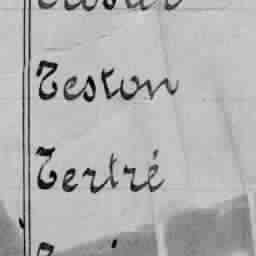 Teston
Tertré